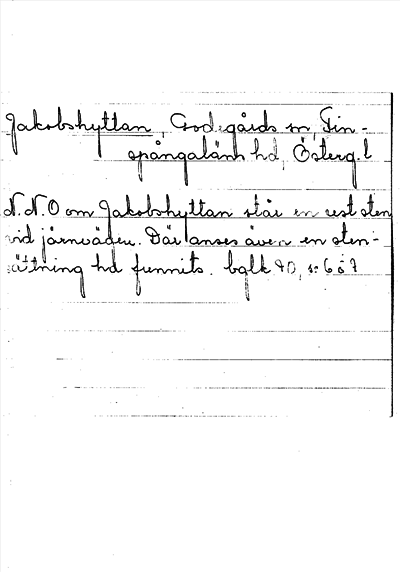 Jakobshyttan, Godegårds sn, Fin-
spångaläns hd, Österg. l
N.N.O om Jakobshyttan står en rest sten
vid järnvägen. Där anses även en sten-
sättning ha funnits. bglk 40, s: 6 o 7